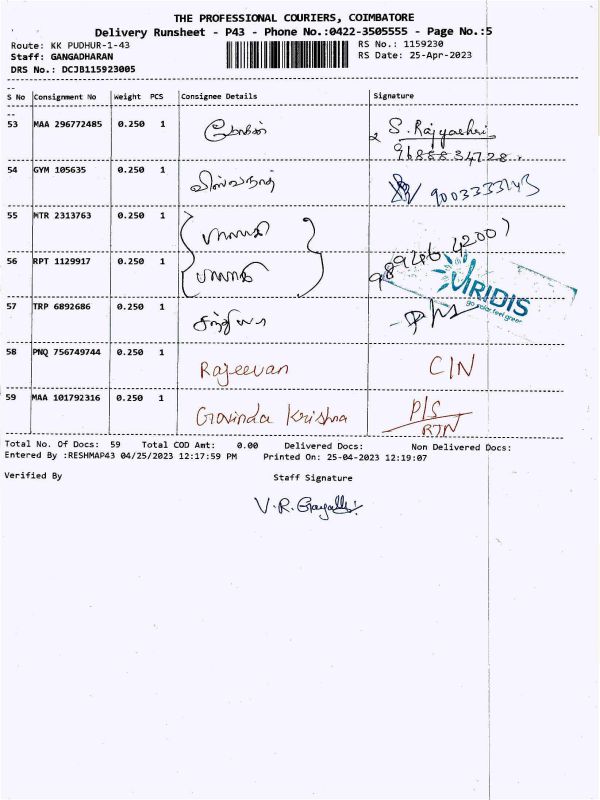 THE PROFESSIONAL COURIERS, COIMBATORE
Delivery Runsheet - P43 - Phone No.:0422-3505555 - Page No.:5
Route: KK PUDHUR-1-43 RS No.: 1159230
Staff: GANGADHARAN RS Date: 25-Apr-2023
DRS No.: DCJB115923005
S No Consignment No Weight PCS Consignee Details Signature
53 MAA 296772485 0.250 1 S. Rajyashri
54 GYM 105635 0.250 1 விஸ்வநாத் 9003333143
55 MTR 2313763 0.250 1 பாலாஜி
56 RPT 1129917 0.250 1 பாலாஜி
VIRIDIS
go solar, feel green
57 TRP 6892686 0.250 1
58 PNQ 756749744 0.250 1 Rajeevan C/N
59 MAA 101792316 0.250 1 Govinda Krishna P/S
RTN
Total No. Of Docs: 59 Total COD Amt: 0.00 Delivered Docs: Non Delivered Docs:
Entered By :RESHMAP43 04/25/2023 12:17:59 PM Printed On: 25-04-2023 12:19:07
Verified By Staff Signature